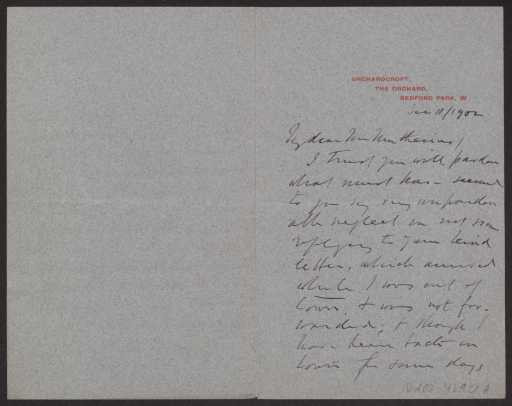 ORCHARDCROFT,
THE ORCHARD,
BEDFORD PARK, W.
/1902
My dear
I trust you will pardon
what must have seemed
to you my very unpardon
able neglect in not
replying to your kind
letter, which arrived
while I was out of
town, & was not for-
warded; & though I
have been back in
town for some days